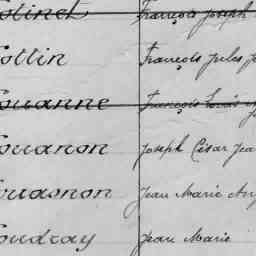 François Joseph
ottin François Jules
ouanne François Louis
ouanon Joseph César Jean
ouasnon Jean Marie
oudray Jean Marie